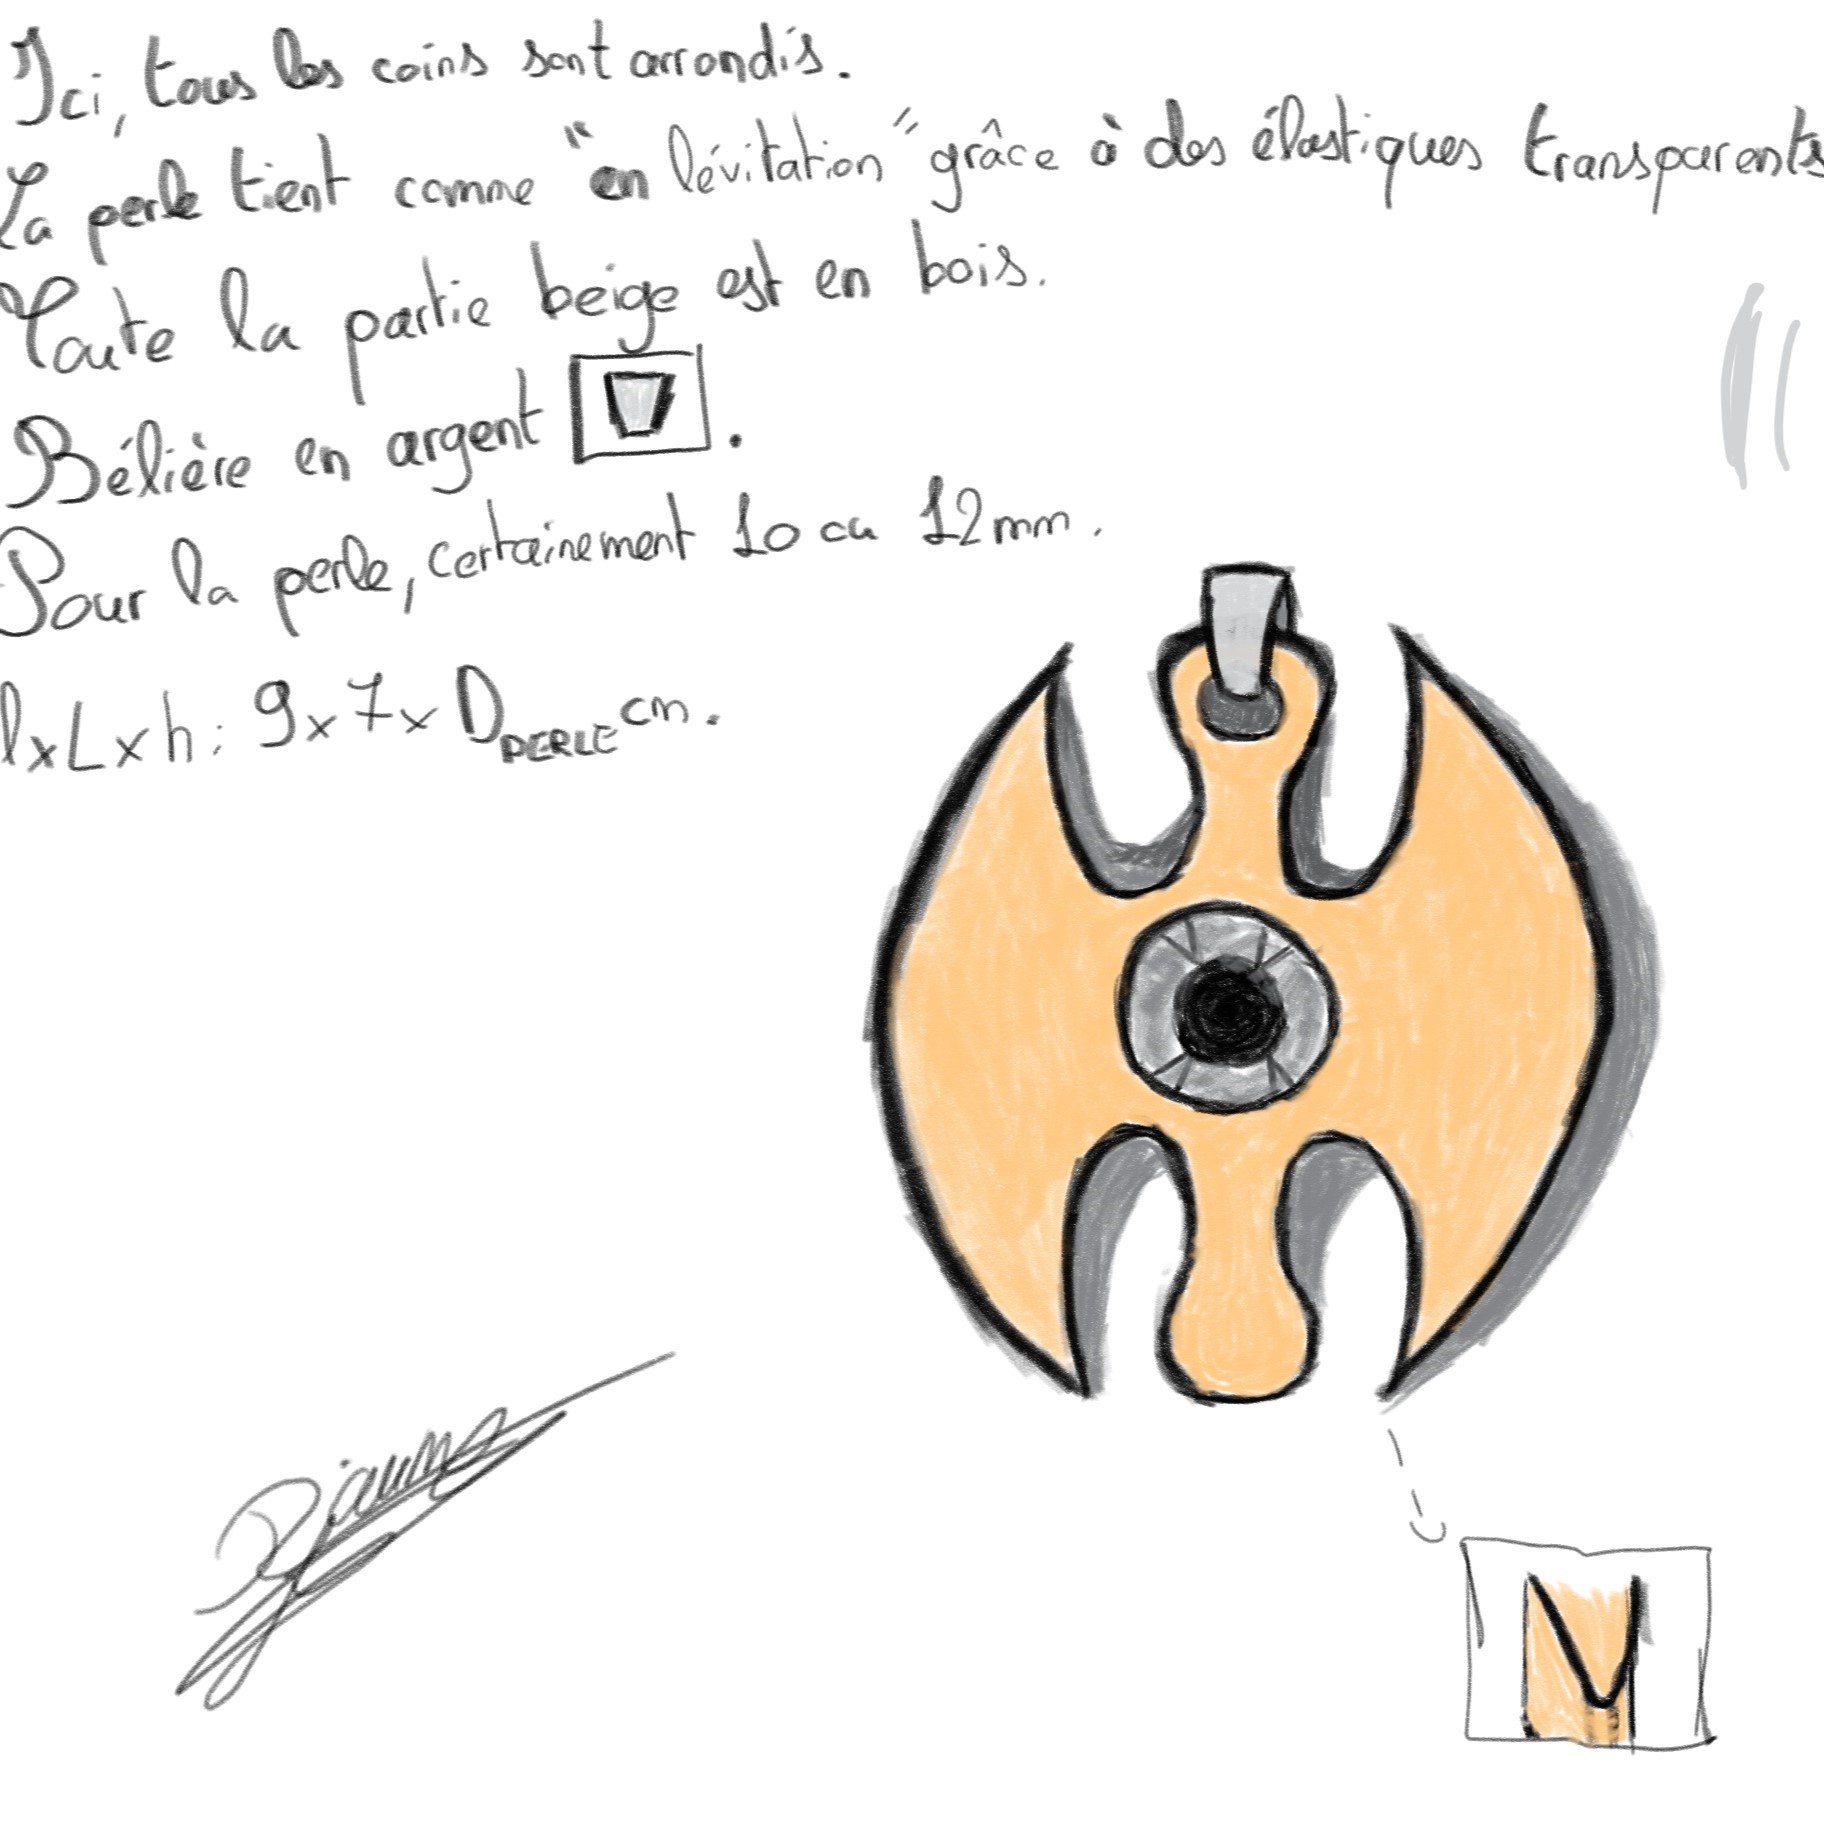 Ici, tous les coins sont arrondis.
La perle tient comme "en lévitation" grâce à des élastiques transparents
Toute la partie beige est en bois.
Bélière en argent .
Pour la perle, certainement 10 ou 12mm.
lxLxh : 9x7x D PERLE cm.